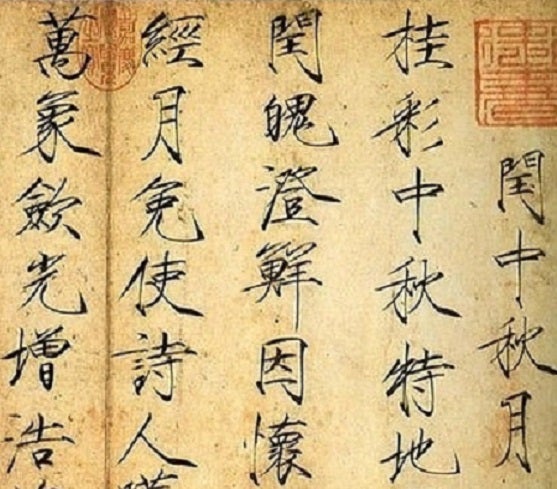 閏中秋月
桂彩中秋特地
閏魄澄鮮因懷
經月免使詩人
萬象歛光增浩